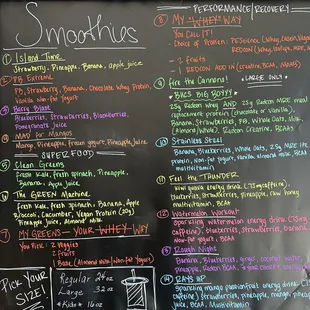 Smoothies
① Island Time
Strawberry, Pineapple, Banana, apple juice
② PB Extreme
PB, Strawberry, Banana, Chocolate Whey Protein,
Vanilla non-fat yogurt
③ Berry Blast
Blueberries, Strawberries, Blackberries,
Pomegranate Juice
④ MAS for Mangos
Mango, Pineapple, frozen yogurt, Pineapple Juice
SUPERFOOD
⑤ Clean Greens
Fresh Kale, Fresh spinach, Pineapple
Banana, Apple Juice
⑥ The GREEN Machine
Fresh Kale, Fresh spinach, Banana, Apple
Broccoli, Cucumber, Vegan Protein (20g)
Pineapple Juice, Almond Milk
⑦ MY GREENS - YOUR WHEY WAY
You Pick: 2 Veggies
2 Fruits
Base (Almond Milk/non-fat yogurt)
PICK YOUR
SIZE!
Regular 24oz
Large 32oz
*Kids* 16oz
PERFORMANCE/RECOVERY
⑧ MY WHEY WAY
YOU CALL IT!
- Choice of Protein:
- 2 Fruits
- 1 REDCON ADD IN (creatine, BCAA,
⑨ Fire the Cannons! *LARGE ONLY*
*BIG BOYZ*
25g Redcon whey AND 25g Redcon MRE meal
replacement protein (chocolate or vanilla),
Banana, Strawberries, PB, Whole Oats, Milk
(Almond/Whole), Redcon Creatine, BCAAs
⑩ Stainless Steel
Banana, Blueberries, Whole Oats, 25g MRE Lite
protein, non-fat yogurt, vanilla almond milk, BCAA
multivitamin
⑪ Feel the THUNDER
kiwi guava energy drink (75mg caffeine),
blueberries, strawberries, pineapple, raw honey
multivitamin, BCAA
⑫ Watermelon Workout
sour kids watermelon energy drink (75mg
caffeine), blueberries, strawberries, banana
non-fat yogurt, BCAA
⑬ Rough Night
Banana, Blueberries, ginger, coconut water,
pineapple, Redcon BCAA
⑭ RAYS UP
Sparkling mango passionfruit energy drink
caffeine) strawberries, pineapple, mango, pineapple
juice, BCAA, Multivitamin